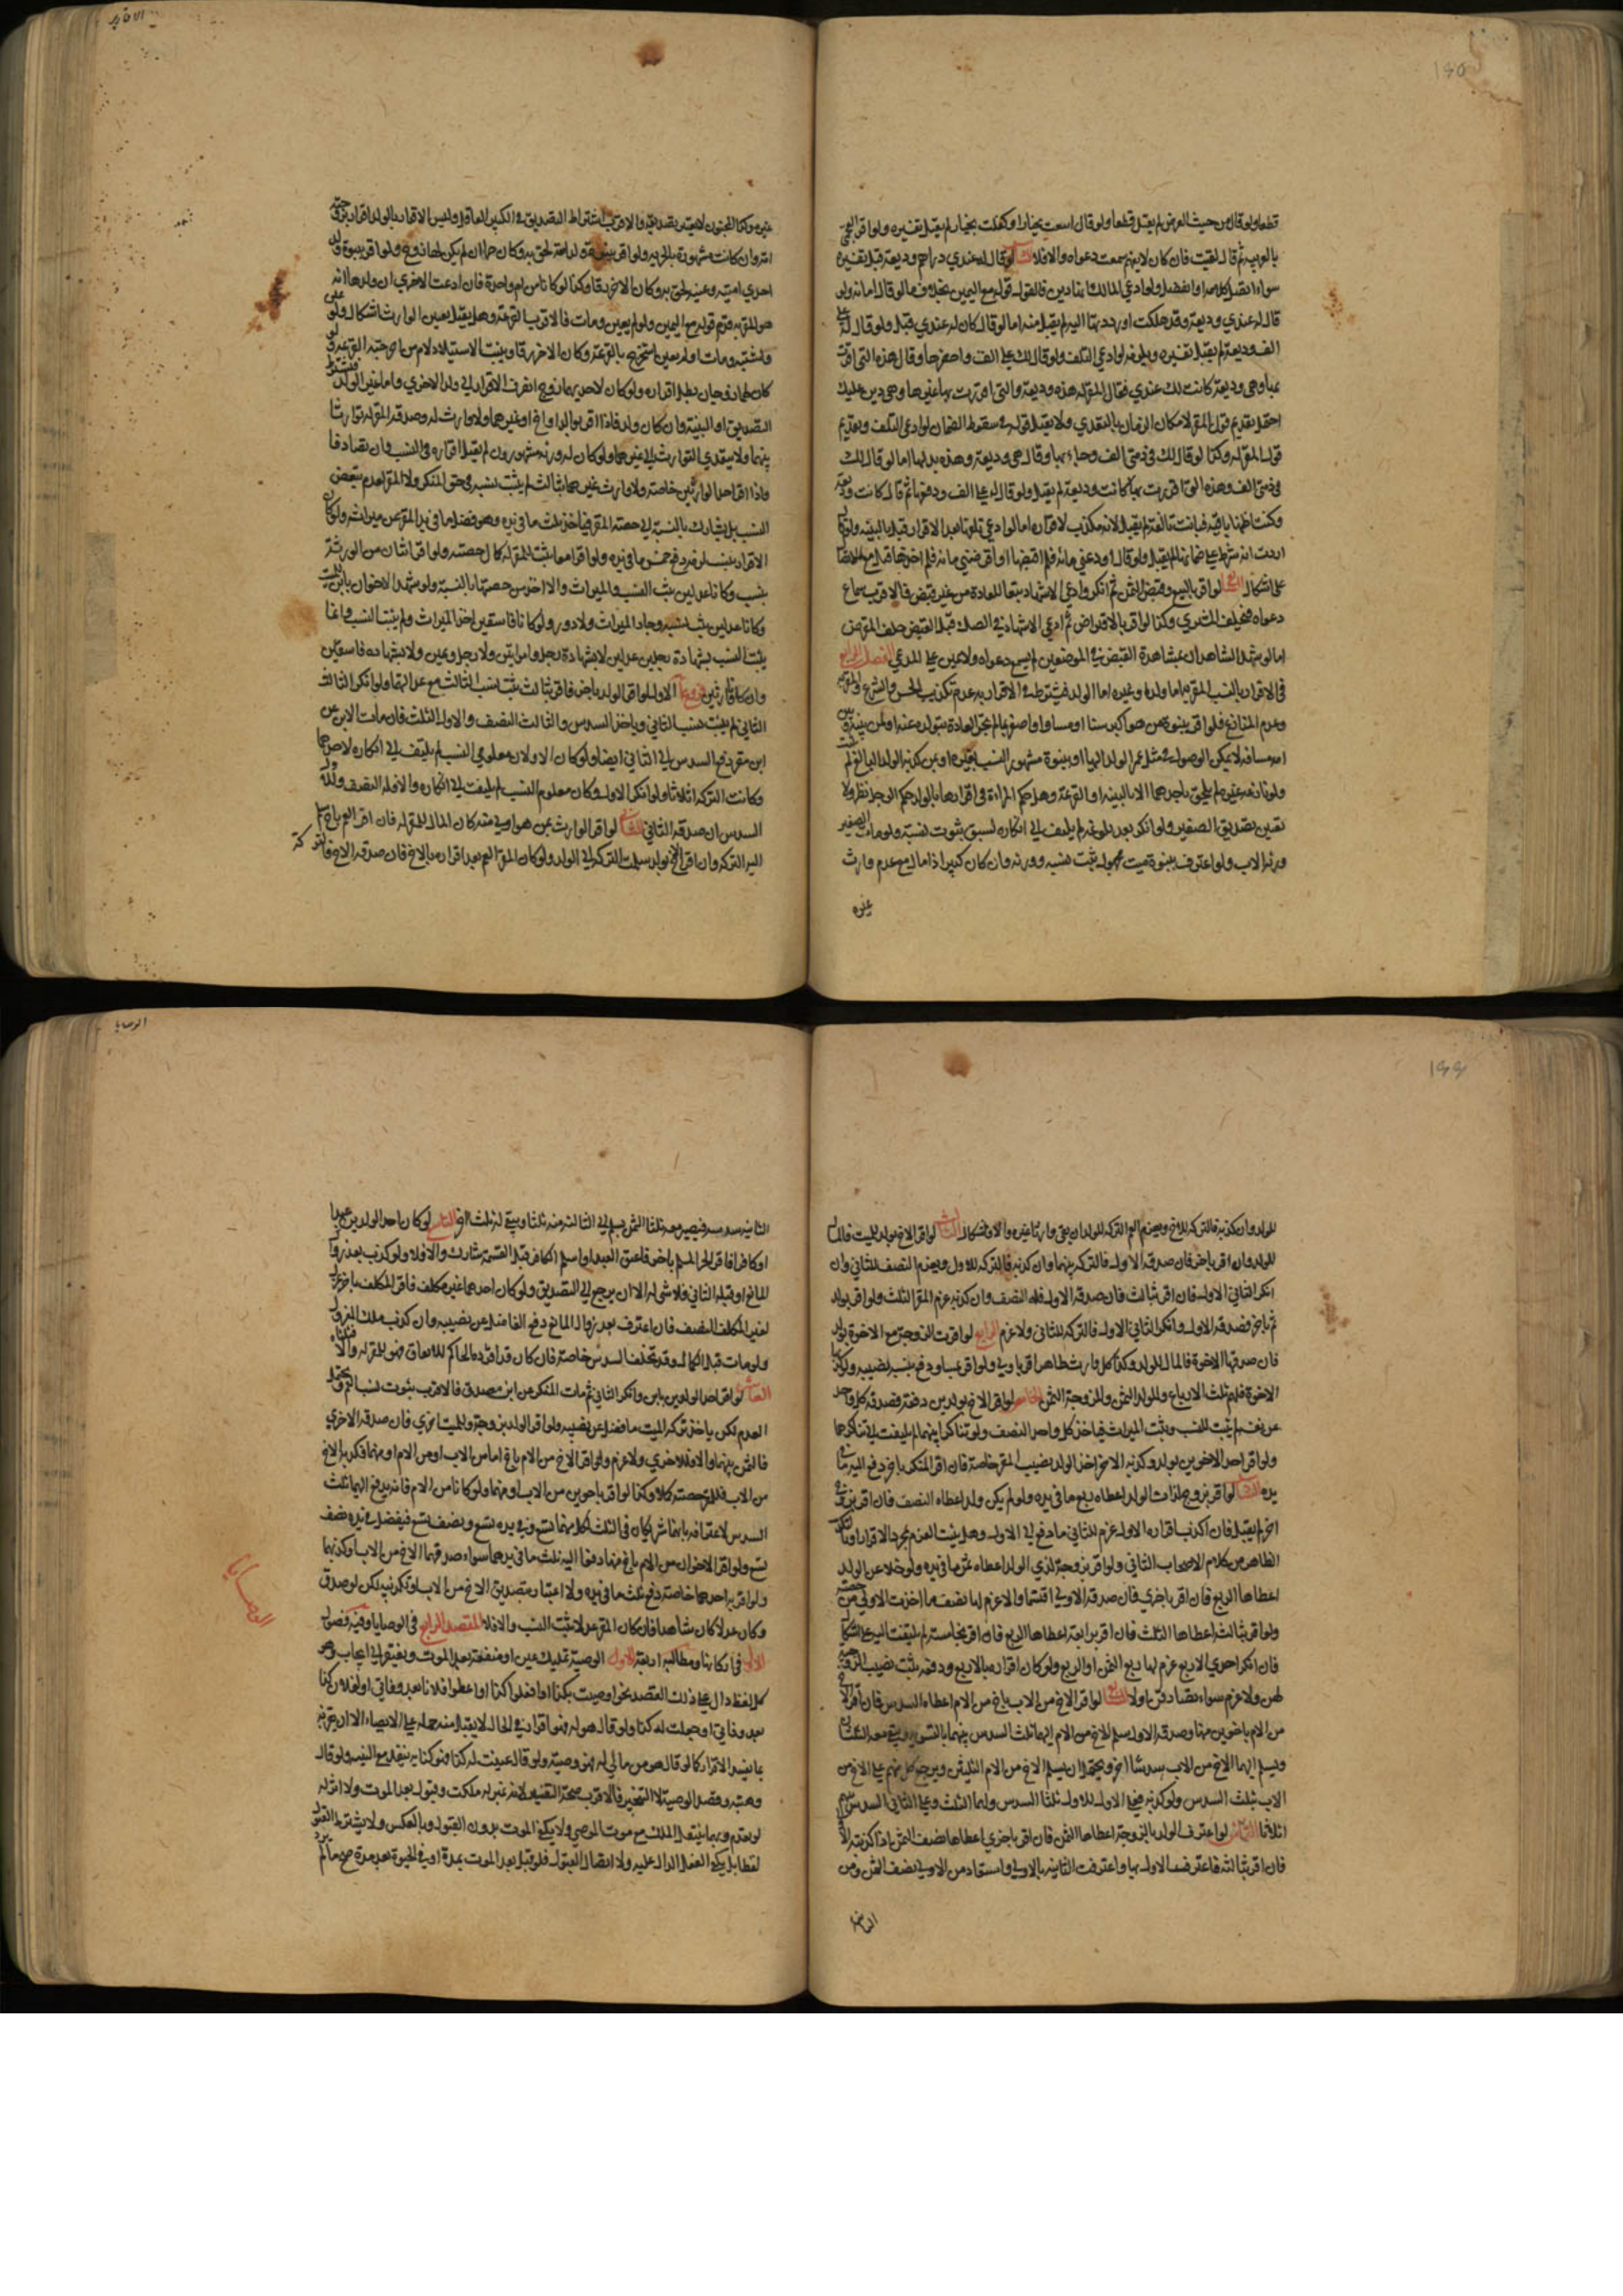 قطعا ولو قال من حيث العرض لم يقبل قطعا ولو قال بعت بخيار او كفلت بخيار لم يقبل تفسيره ولو اقر العجمي
بالعربية ثم قال لقنت فان كان لا يفهم سمعت دعواه والا فلا لو قال له عندي دراهم وديعة قبل تفسيره
سواء اتصل كلامه او انفصل ولو ادعى المالك انها دين فالقول قوله مع اليمين بخلاف ما لو قال امانة ولو
قال له عندي وديعة وقد هلكت او رددتها اليه لم يقبل منه اما لو قال كان له عندي قبل ولو قال له علي
الف وديعة لم يقبل تفسيره ويلزمه لو ادعى التلف ولو قال لك علي الف واحضرها وقال هذه التي اقررت
بها وهي وديعة كانت لك عندي فقال المقر له هذه وديعة والتي اقررت بها غيرها وهي دين عليك
احتمل تقديم قول المقر لامكان الضمان بالتعدي ولا يقبل قوله في سقوط الضمان لو ادعى التلف وتقديم
قول المقر له وكذا لو قال لك في ذمتي الف وجاء بها وقال هي وديعة وهذه بدلها اما لو قال لك
في ذمتي الف وهذه التي اقررت بها كانت وديعة لم يقبل ولو قال له علي الف ودفعها ثم قال كانت وديعة
وكنت اظنها باقية فبانت تالفة لم يقبل لانه مكذب لاقراره اما لو ادعى تلفها بعد الاقرار قبل بالبينة
على اشكال الرابع لو اقر بالبيع وقبض الثمن ثم انكر وادعى الاشهاد تبعا للعادة من غير قبض فالاقرب سماع
دعواه فيحلف المشتري وكذا لو اقر بالاقتراض ثم ادعى الاشهاد في الصك قبل القبض حلف المقرض
اما لو شهد الشاهدان بمشاهدة القبض في الموضعين لم يسمع دعواه ولا يمين على المدعي الفصل الرابع
في الاقرار بالنسب المقر به اما ولد او غيره اما الولد فيشترط في الاقرار به عدم تكذيب الحس والشرع
وعدم المنازع فلو اقر ببنوة من هو اكبر سنا او مساو او اصغر بما لم تجر العادة بتولده عنه او لمن بينه وبين
امه مسافة لا يمكن الوصول في مثل عمر الولد اليها او ببنوة مشهور النسب بغيره او بمن كذبه الولد البالغ لم يثبت
ولو نازعه غيره لم يلحق باحدهما الا بالبينة او القرعة وهل حكم المراة في اقرارها بالولد حكم الرجل نظر ولا
يعتبر تصديق الصغير ولو انكر بعد بلوغه لم يلتفت الى انكاره لسبق ثبوت نسبه ولو مات الصغير
ورثه الاب ولو اعترف ببنوة ميت مجهول ثبت نسبه وورثه وان كان كبيرا ذا مال مع عدم وارث
غيره
الاقرار
غيره وكذا المجنون لا يعتبر تصديقه والاقرب اشتراط التصديق في الكبير العاقل وليس الاقرار بالولد اقرارا بزوجية
امه وان كانت مشهورة بالحرية ولو اقر ببنوة ولد امته لحق به وكان حرا ان لم يكن لها زوج ولو اقر ببنوة ولد
احدى امتيه وعينه لحق به وكان الاخر رقا وكذا لو كانا من ام واحدة فان ادعت الاخرى ان ولدها الذي
هو المقر به قدم قوله مع اليمين ولو لم يعين ومات فالاقرب القرعة وهل يقبل تعيين الوارث اشكال ولو
بينهما ولا يتعدى التوارث الى غيرهما ولو كان له ورثة مشهورون لم يقبل اقراره في النسب وان تصادقا
واذا اقر احد الوارثين خاصة ولا وارث غيرهما بثالث لم يثبت نسبه في حق المنكر ولا المقر
بنسب وكانا عدلين ثبت النسب والميراث والا اخذ من حصتهما بالنسبة ولو شهد الاخوان بابن للميت
وكانا عدلين ثبت نسبه وحاز الميراث ولا دور ولو كانا فاسقين اخذ الميراث ولم يثبت النسب وانما
يثبت النسب بشهادة رجلين عدلين لا بشهادة رجل وامراتين ولا رجل ويمين ولا بشهادة فاسقين
وان كانا وارثين فروع الاول لو اقر الولد باخر فاقرا بثالث ثبت نسب الثالث مع عدالتهما ولو انكر الثالث
الثاني لم يثبت نسب الثاني وياخذ السدس والثالث النصف والاول الثلث فان مات الابن عن
ابن مقر دفع السدس الى الثاني ايضا ولو كان الاولان معلومي النسب لم يلتفت الى انكاره لاحدهما
وكانت التركة اثلاثا ولو انكر الاول وكان معلوم النسب لم يلتفت الى انكاره والا فله النصف وللاول
السدس ان صدقه الثاني الثاني لو اقر الوارث بمن هو اولى منه كان المال للمقر له فان اقر العم باخ سلم
اليه التركة وان اقر الاخ بولد سلمت التركة الى الولد ولو كان المقر العم بعد اقراره بالاخ فان صدقه الاخ فالتركة
للولد وان كذبه فالتركة للاخ ويغرم العم التركة للولد ان نفى وارثا غيره والا فاشكال الثالث لو اقر الاخ بولد للميت فالمال
للولد وان اقر باخر فان صدقه الاول فالتركة بينهما وان كذبه فالتركة للاول ويغرم النصف للثاني وان
انكر الثاني الاول فان اقر بثالث فان صدقه الاول فله النصف وان كذبه غرم المقر الثلث ولو اقر بولد
ثم باخر فصدقه الاول وانكر الثاني الاول فالتركة للثاني ولا غرم الرابع لو اقرت الزوجة مع الاخوة بولد
فان صدقها الاخوة فالمال للولد وكذا كل وارث ظاهر اقر باولى ولو اقر بمساو دفع بنسبة نصيبه ولو كذبها
الاخوة فلهم ثلثة الارباع وللولد الثمن وللزوجة الثمن الخامس لو اقر الاخ بولدين دفعة فصدقه كل واحد
عن نفسه لم يثبت النسب ويثبت الميراث فياخذ كل واحد النصف ولو تناكرا بينهما لم يلتفت الى تناكرهما
ولو اقر احد الاخوين بولد وكذبه الاخر اخذ الولد نصيب المقر خاصة فان اقر المنكر باخر دفع اليه ما في
يده السادس لو اقر بزوج لذات الولد اعطاه ربع ما في يده ولو لم يكن ولد اعطاه النصف فان اقر بزوج
اخر لم يقبل فان اكذب اقراره الاول غرم للثاني ما دفع الى الاول وهل يثبت الغرم بمجرد الاقرار او بالتكذيب
الظاهر من كلام الاصحاب الثاني ولو اقر بزوجة لذي الولد اعطاه ثمن ما في يده ولو خلا عن الولد
اعطاها الربع فان اقر باخرى فان صدقته الاولى اقتسما والا غرم لها نصف ما اخذت الاولى من حصته
ولو اقر بثالثة اعطاها الثلث فان اقر برابعة اعطاها الربع فان اقر بخامسة لم يلتفت اليه على اشكال
فان انكر احدى الاربع غرم لها ربع الثمن او الربع ولو كان اقراره بالاربع دفعة ثبت نصيب الزوجية
لهن ولا غرم سواء تصادقن او لا السابع لو اقر الاخ من الاب باخ من الام اعطاه السدس فان اقر الاخ
من الام باخوين منها وصدقه الاول سلم الاخ من الام اليهما ثلث السدس بينهما بالسوية ويبقى معه الثلثان
ويسلم اليهما الاخ من الاب سدسا اخر ويحتمل ان يسلم الاخ من الام الثلثين ويرجع كل منهم على الاخ من
الاب بثلث السدس ولو كذبه فعلى الاول للاول ثلثا السدس ولهما الثلث وعلى الثاني السدس بينهم
اثلاثا الثامن لو اعترف الولد بالزوجة اعطاها الثمن فان اقر باخرى اعطاها نصف الثمن اذا كذبته الاولى
فان اقر بثالثة فاعترفت الاولى بها واعترفت الثانية بالاولى استعاد من الاولى نصف الثمن ومن
الثانية
الوصايا
الثانية سدسه فيصير معه ثلثا الثمن يسلم الى الثالثة منه ثلثا ويبقى له ثلث اخر التاسع لو كان احد الولدين عبدا
او كافرا فاقر الحر المسلم باخر فاعتق العبد او اسلم الكافر قبل القسمة شارك والا فلا ولو كذب بعد زوال
المانع او قبله الثاني فلا شيء له الا ان يرجع الى التصديق ولو كان احدهما غير مكلف فاقر المكلف باخر عزل
لغير المكلف النصف فان اعترف بعد زوال المانع دفع الفاضل عن نصيبه وان كذب ملك المعزول
ولو مات قبل الكمال وقد تخلف السدس خاصة فان كان قد افرزه الحاكم للايقاف فهو للمقر له والا فثلثاه
العاشر لو اقر احد الولدين بابن وانكر الثاني ثم مات المنكر عن ابن مصدق فالاقرب ثبوت نسب العم ويحتمل
العدم لكن ياخذ من تركة الميت ما فضل عن نصيبه ولو اقر الولد بزوجة وللميت اخرى فان صدقته الاخرى
فالثمن بينهما والا فللاخرى ولا غرم ولو اقر الاخ من الام باخ اما من الاب او من الام او منهما فكذبه الاخ
من الاب فللمقر حصته كملا وكذا لو اقر باخوين من الاب او منهما ولو كانا من الام فانه يدفع اليهما ثلث
السدس لاعترافه بانهما شريكان في الثلث لكل منهما تسع وفي يده تسع ونصف تسع فيفضل في يده نصف
تسع ولو اقر الاخوان من الام باخ منها دفعا اليه ثلث ما في يدهما سواء صدقهما الاخ من الاب او كذبهما
ولو اقر به احدهما خاصة دفع ثلث ما في يده ولا اعتبار بتصديق الاخ من الاب او تكذيبه لكن لو صدق
وكان عدلا كان شاهدا فان كان المقر عدلا ثبت النسب والا فلا المقصد الرابع في الوصايا وفيه فصول
الاول في اركانها ومطالبه اربعة الاول الوصية تمليك عين او منفعة بعد الموت ويفتقر الى ايجاب وهو
كل لفظ دال على ذلك القصد نحو اوصيت بكذا او افعلوا كذا او اعطوا فلانا بعد وفاتي او لفلان كذا
بعد وفاتي او جعلت له كذا ولو قال هو له فهو اقرار في الحال لا يقبل منه حمله على الايصاء الا ان يقرنه
بما يفسد الاقرار كما لو قال هو من مالي له فهو وصية ولو قال عينت له كذا فهو كناية ينفذ مع النية ولو قال
وهبته وقصد الوصية لا التنجيز فالاقرب صحة التفسير لانه بمنزلة ملكت وقبول بعد الموت ولا اثر له
لو تقدم وبهما ينتقل الملك مع موت الموصي ولا يكفي الموت بدون القبول وبالعكس ولا يشترط القبول
لفظا بل يكفي الفعل الدال عليه ولا اتصال القبول فلو قبل بعد الموت بمدة او في الحيوة بعد مدة صح ما لم يرد
الوصايا